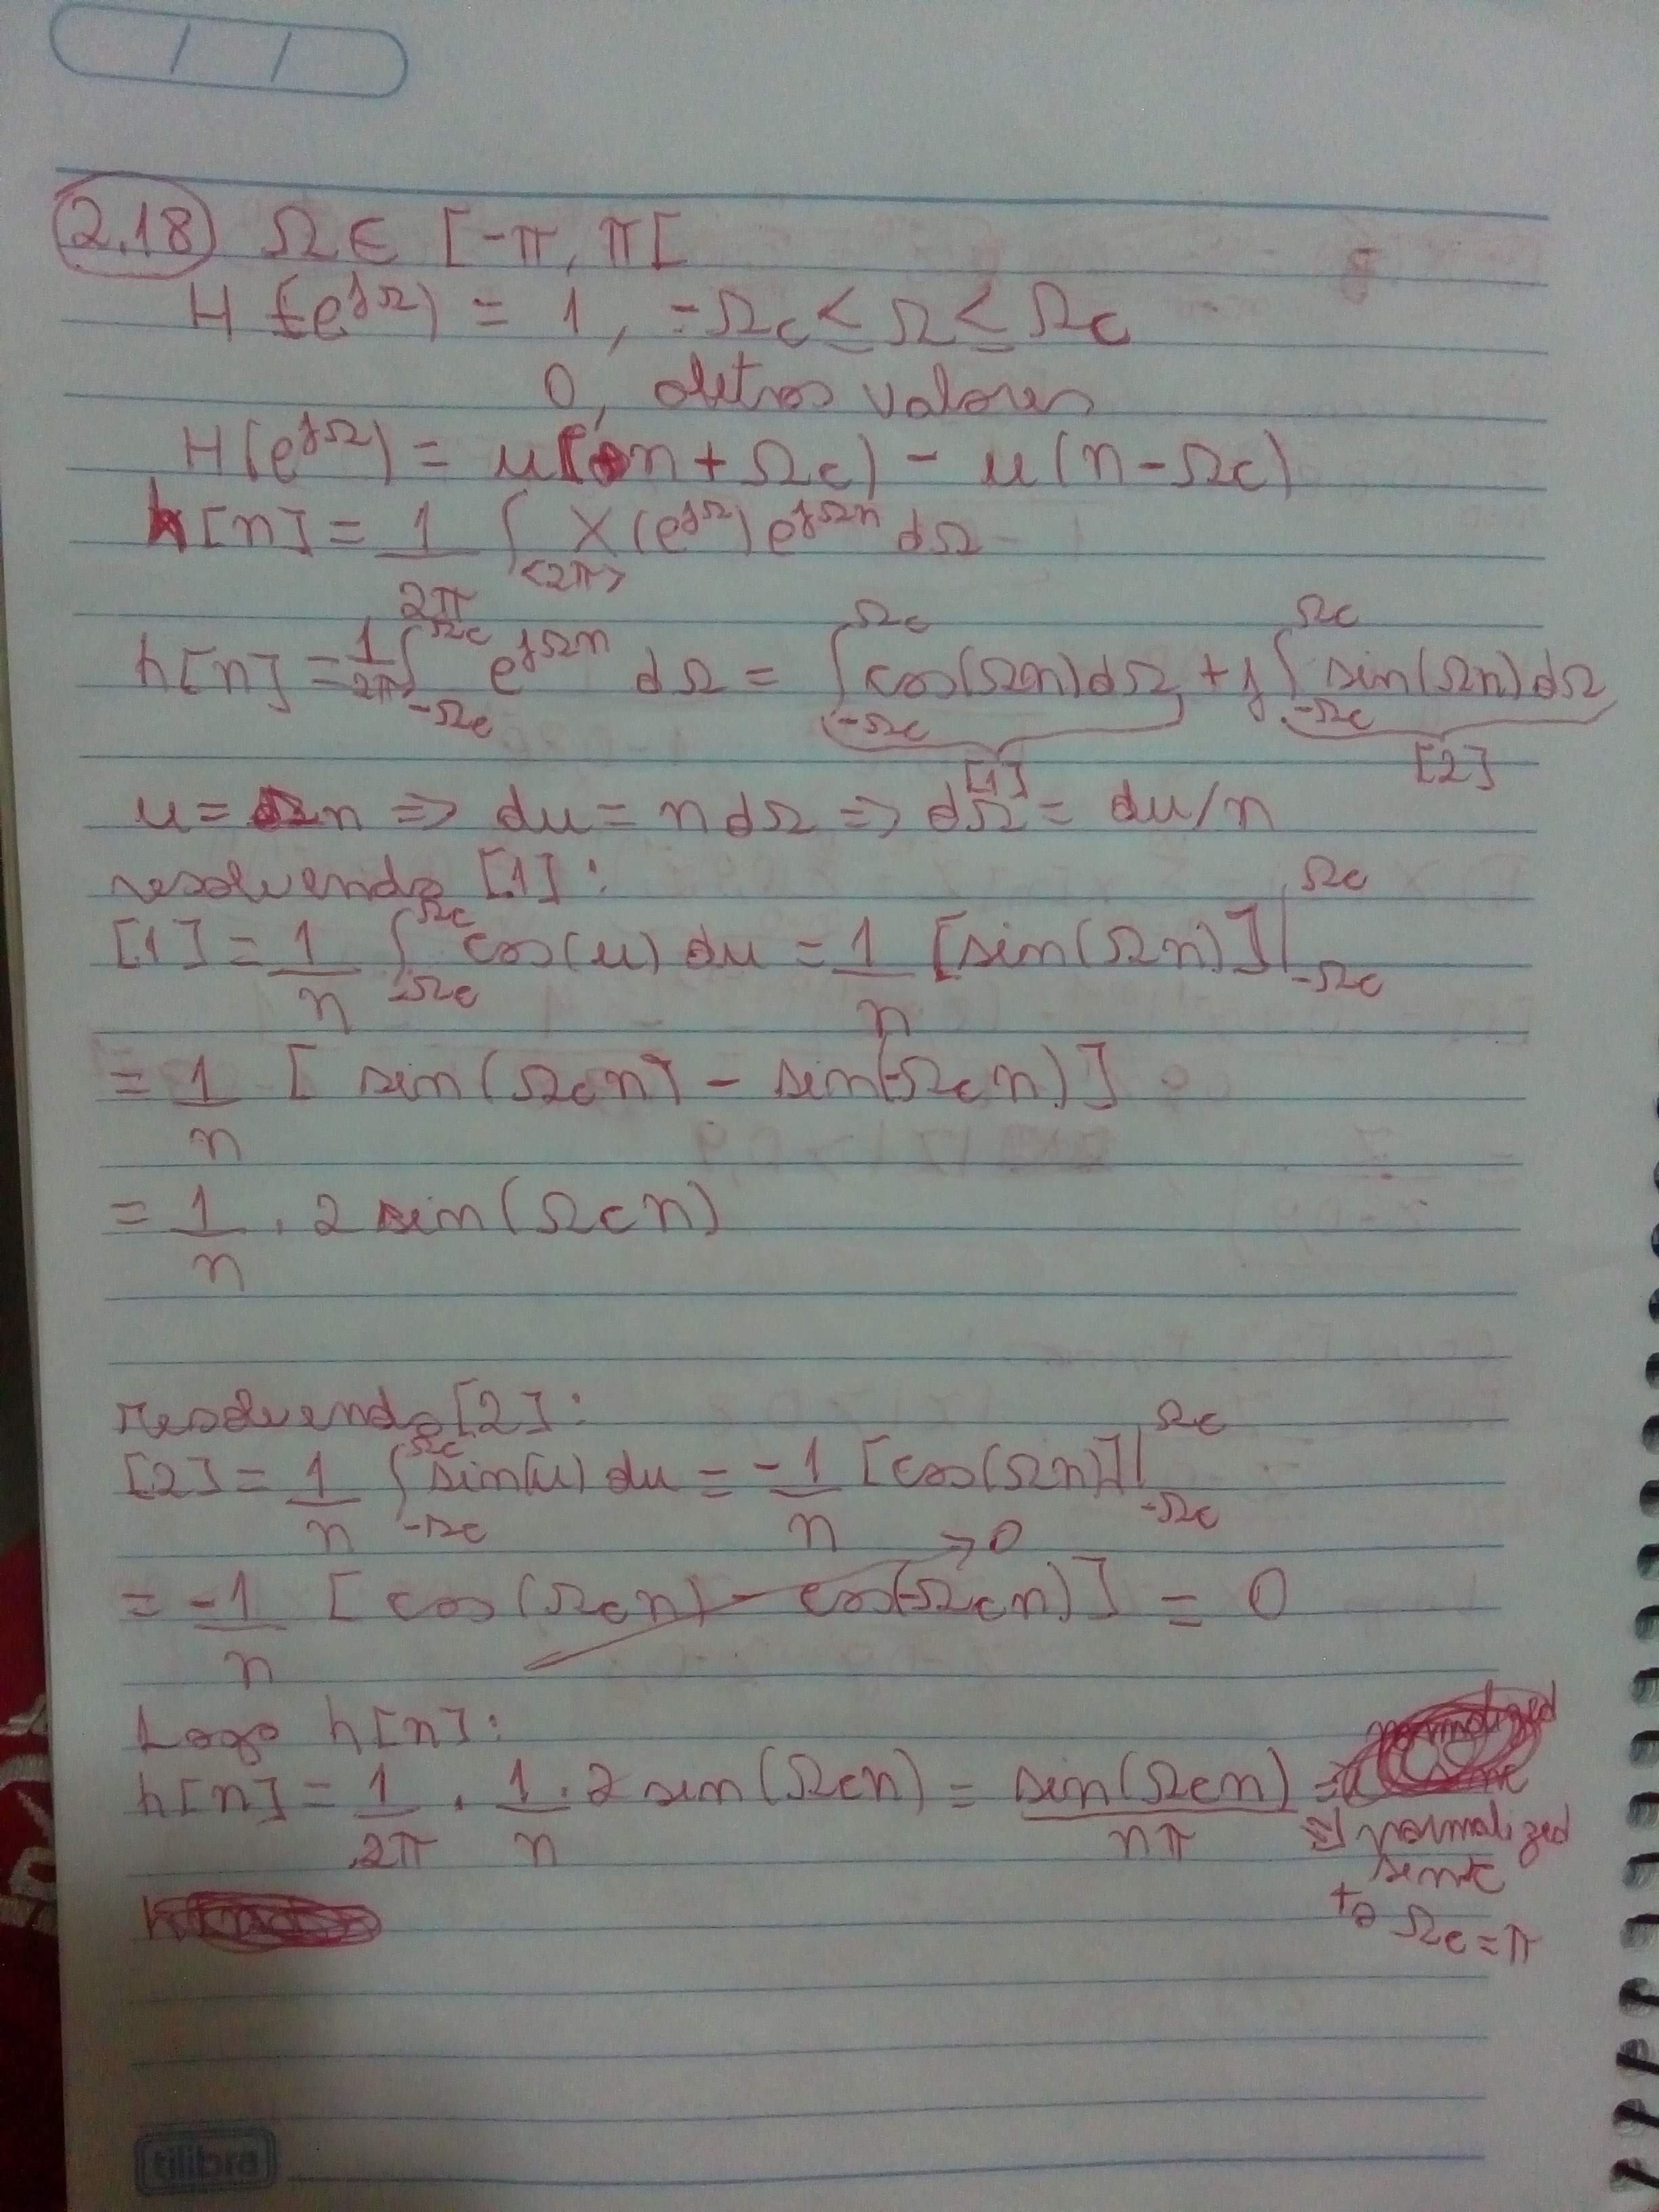 2.18 Ω ∈ [-π, π[
H (e^jΩ) = 1, -Ωc ≤ Ω ≤ Ωc
0, outros valores
H(e^jΩ) = u(n + Ωc) - u(n - Ωc)
h[n] = 1/2π ∫<2π> X(e^jΩ) e^jΩn dΩ
h[n] = 1/2π ∫-Ωc^Ωc e^jΩn dΩ = ∫-Ωc^Ωc cos(Ωn)dΩ + j ∫-Ωc^Ωc sin(Ωn)dΩ
[1] [2]
u = Ωn => du = n dΩ => dΩ = du/n
resolvendo [1]:
[1] = 1/n ∫-Ωc^Ωc cos(u) du = 1/n [sin(Ωn)]|-Ωc^Ωc
= 1/n [sin(Ωcn) - sin(-Ωcn)]
= 1/n . 2 sin(Ωcn)
resolvendo [2]:
[2] = 1/n ∫-Ωc^Ωc sin(u) du = -1/n [cos(Ωn)]|-Ωc^Ωc
= -1/n [cos(Ωcn) - cos(-Ωcn)] → 0 = 0
Logo h[n]:
h[n] = 1/2π . 1/n . 2 sin(Ωcn) = sin(Ωcn)/nπ
=> normalized
sinc
to Ωc = π
tilibra